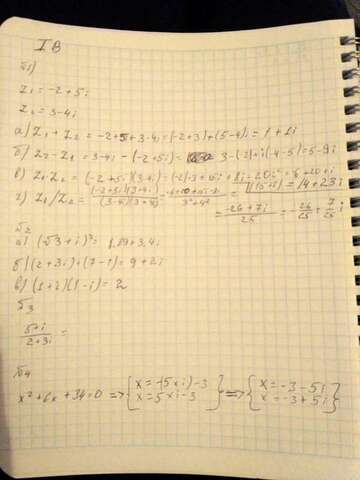 I B
№1)
z₁ = -2+5i
z₂ = 3-4i
а) z₁+z₂ = -2+5i+3-4i=(-2+3)+(5-4)i=1+1i
б) z₂-z₁ = 3-4i-(-2+5i)= 3-(-2)+i(-4-5)=5-9i
в) z₁z₂ = (-2+5i)(3-4i)=(-2)·3+15i+8i-20i²=-6+20+i·
(15+8)=14+23i
г) z₁/z₂ = (-2+5i)(3+4i)/(3-4i)(3+4i) = /3²+4² =
= -26+7i/25 = -26/25 + 7/25 i
№2
а) (√3+i)² = 3,4i
б) (2+3i)+(7-i)=9+2i
в) (1+i)(1-i)=2
№3
5+i/2+3i =
№4
x²+6x+34=0 => { x=-(5×i)-3 => { x=-3-5i
x=5×i-3 x=-3+5i